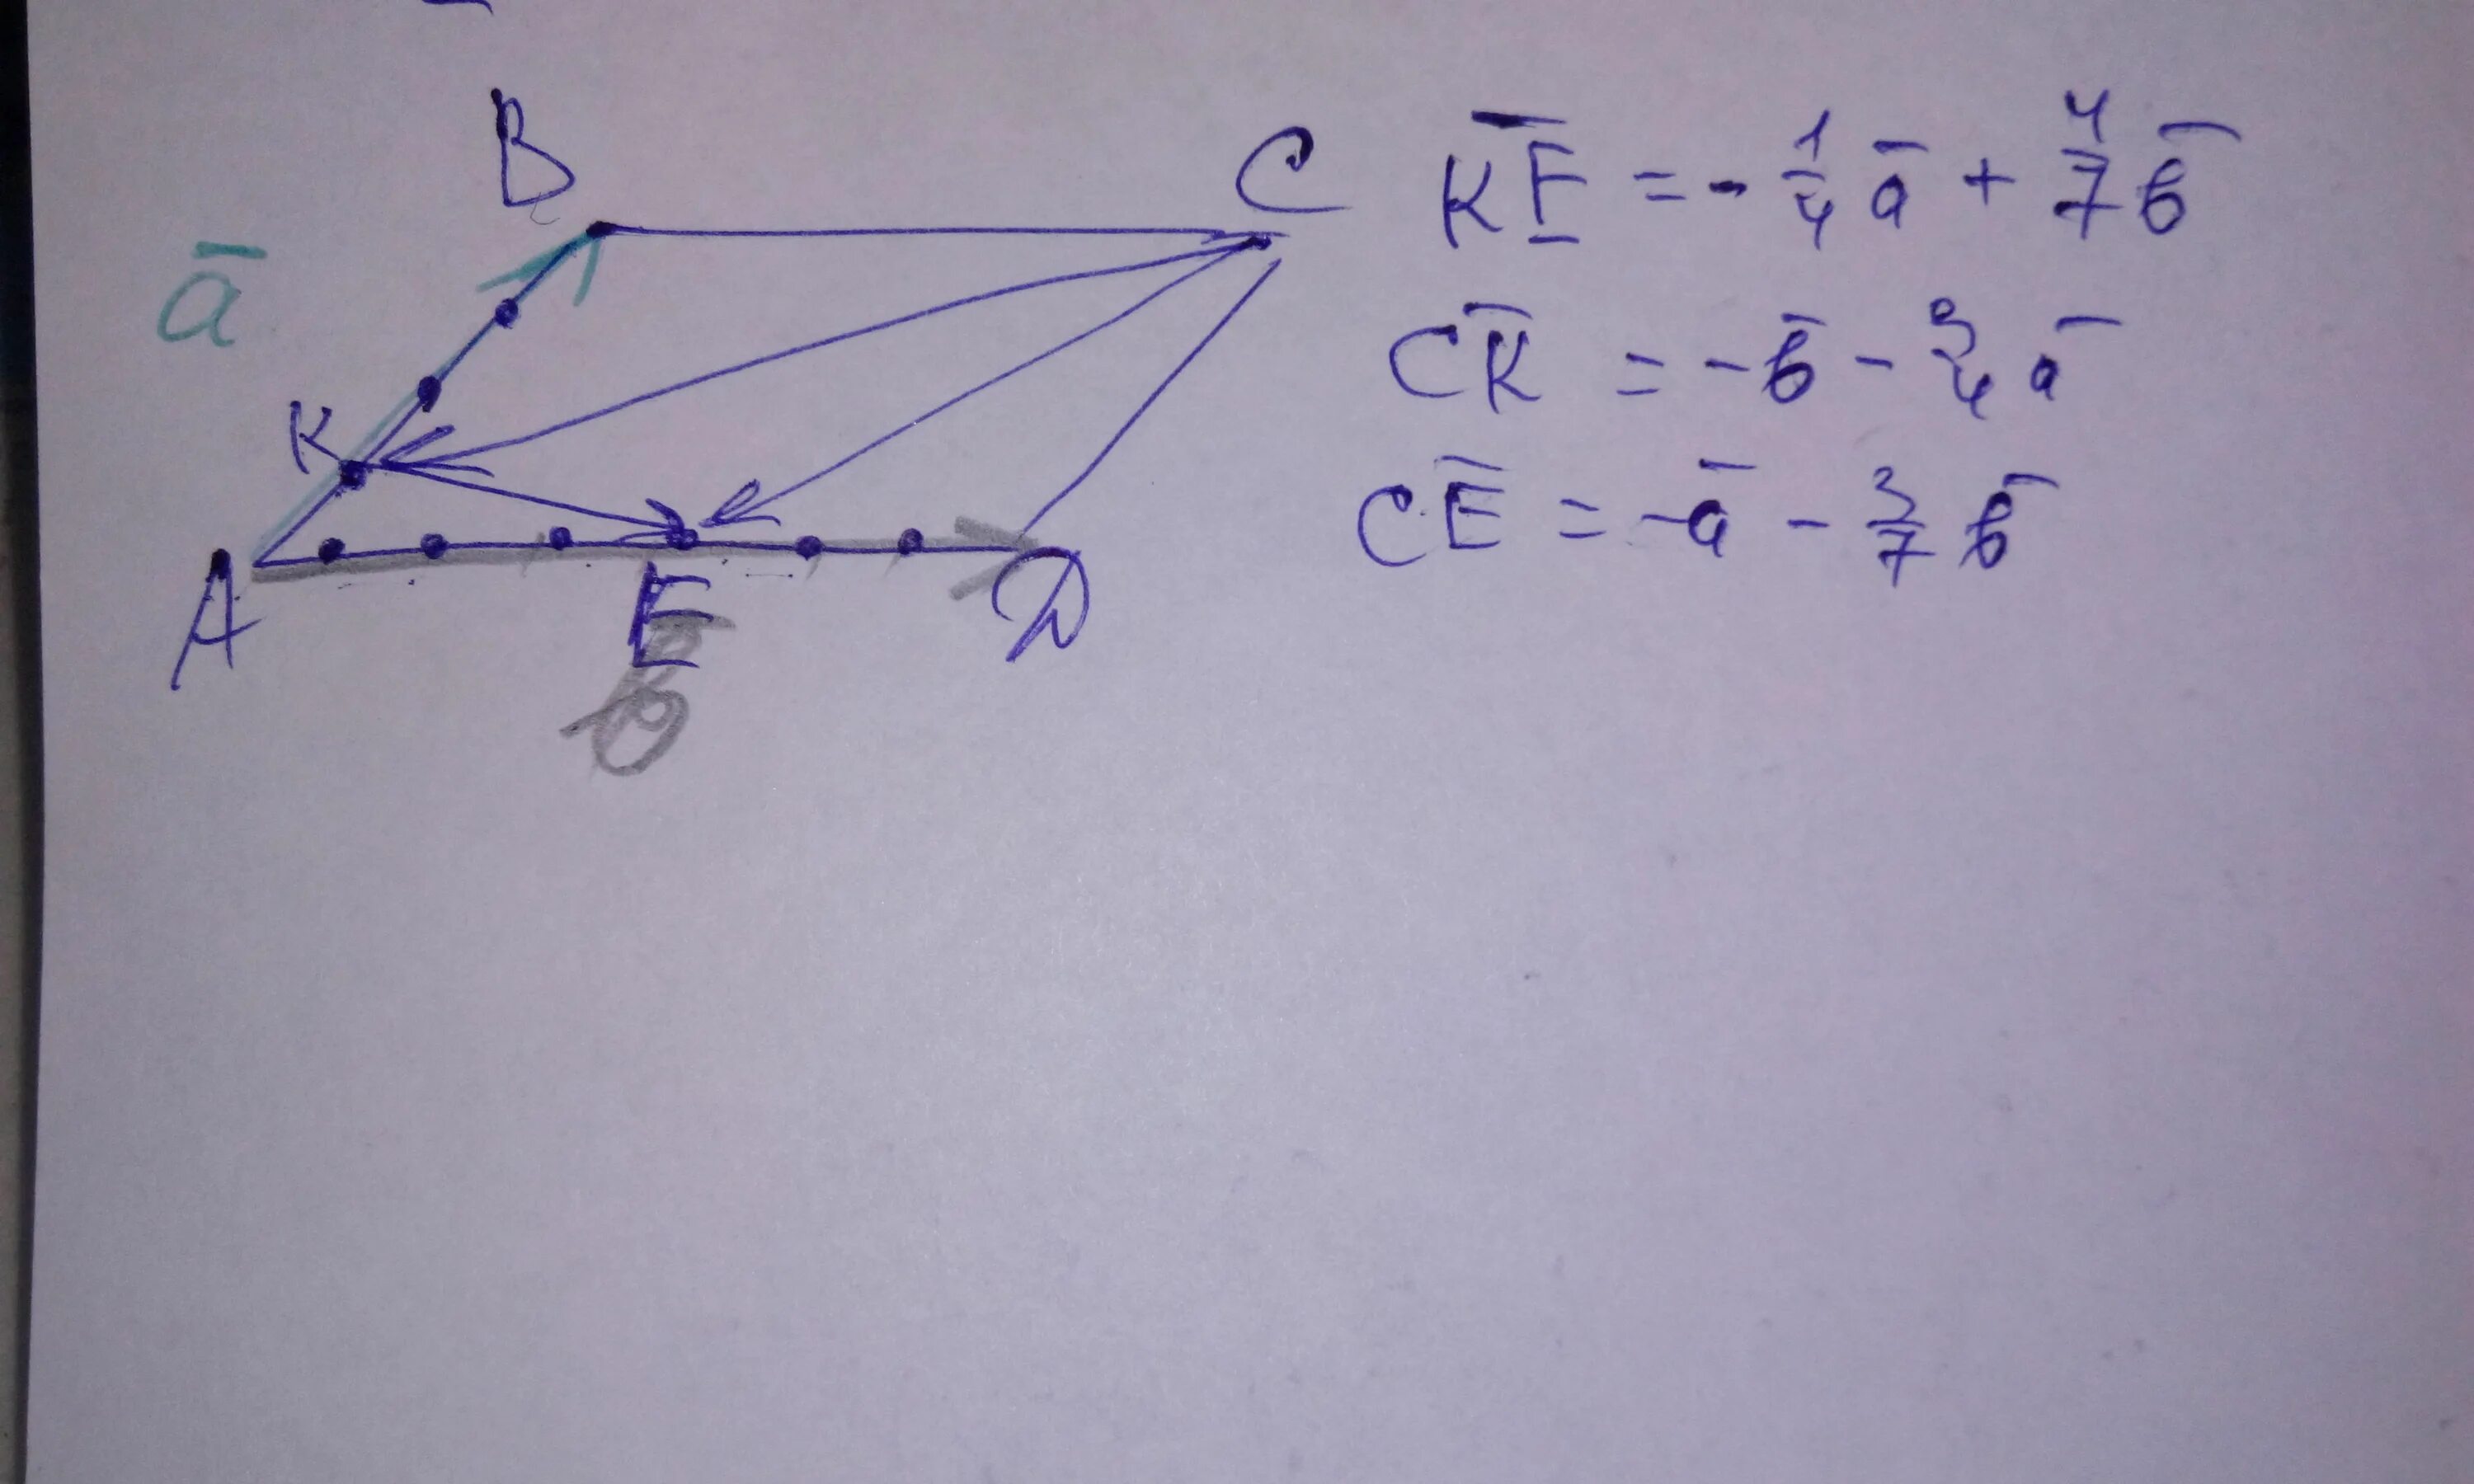 B
C
a̅
K
A
E
D
b̅
K̅E̅ = - 1/4 a̅ + 4/7 b̅
C̅K̅ = - b̅ - 3/4 a̅
C̅E̅ = - a̅ - 3/7 b̅